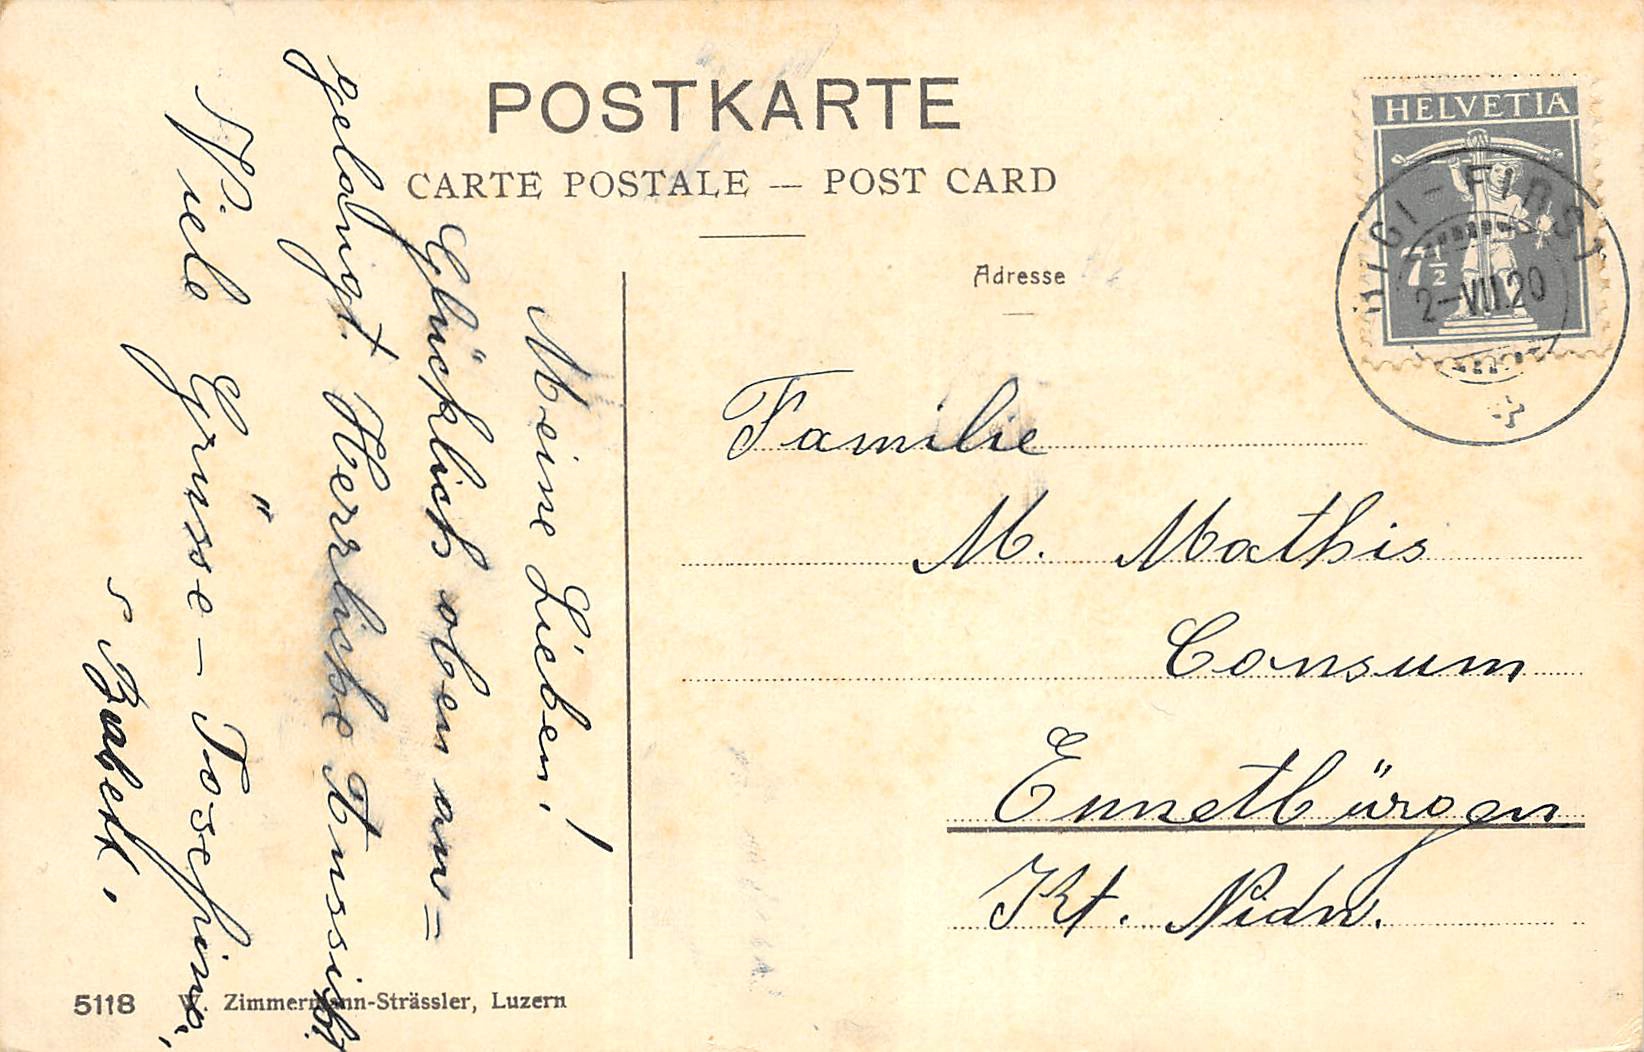 POSTKARTE
CARTE POSTALE — POST CARD
Adresse
HELVETIA
7½
RIGI-FIRST
2-VIII.20
Familie
M. Mathis
Consum
Ennetbürgen
Kt. Nidw.
Meine Lieben!
Glücklich oben an=
gelangt. Herrliche Aussicht
Viele Grüsse – Josefina,
Babett.
5118 W. Zimmermann-Strässler, Luzern